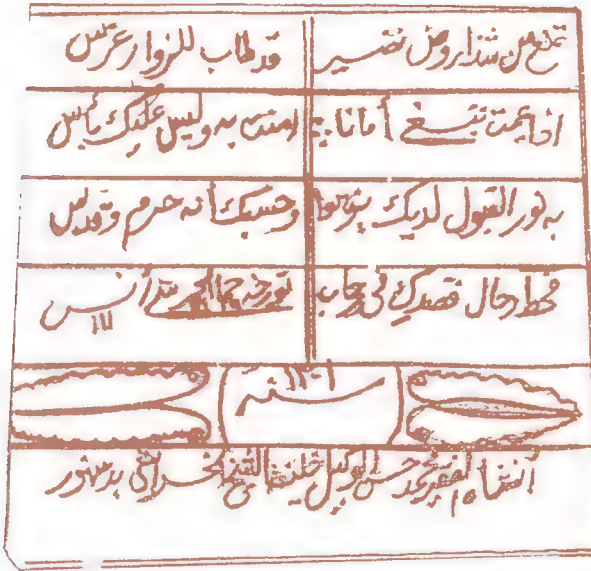 تمتع من شذا روض نضير قد طاب للزوار غرس
اذا يممت تبتغي أمانا أمنت به وليس عليك بأس
به نور القبول لديك وحسبك أنه حرم وقدس
فحط رحال قصدك في رحاب أنس
سنة ١٣٠١
أنشأه الفقير محمد حسن الوكيل خليفة الشيخ بدمنهور